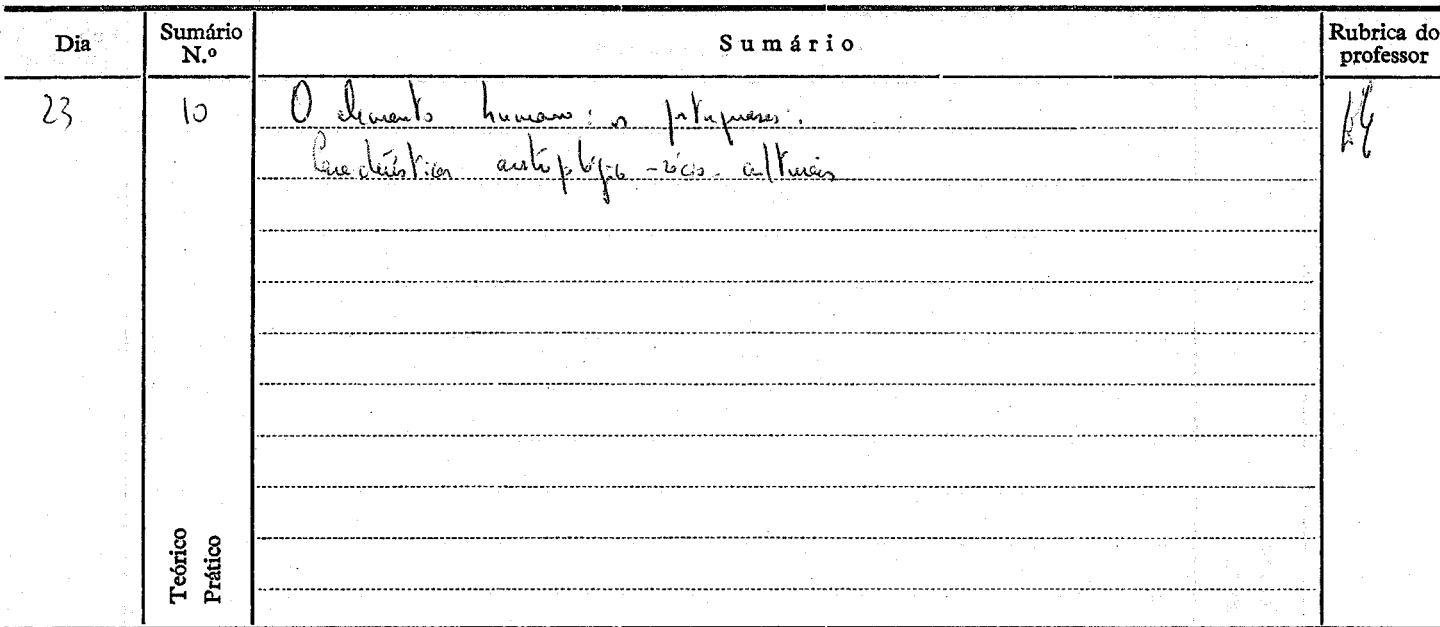 Dia Sumário N.º Sumário Rubrica do professor
23 10 O elemento humano: os portugueses.
Características antropológico-sócio-culturais
Teórico
Prático